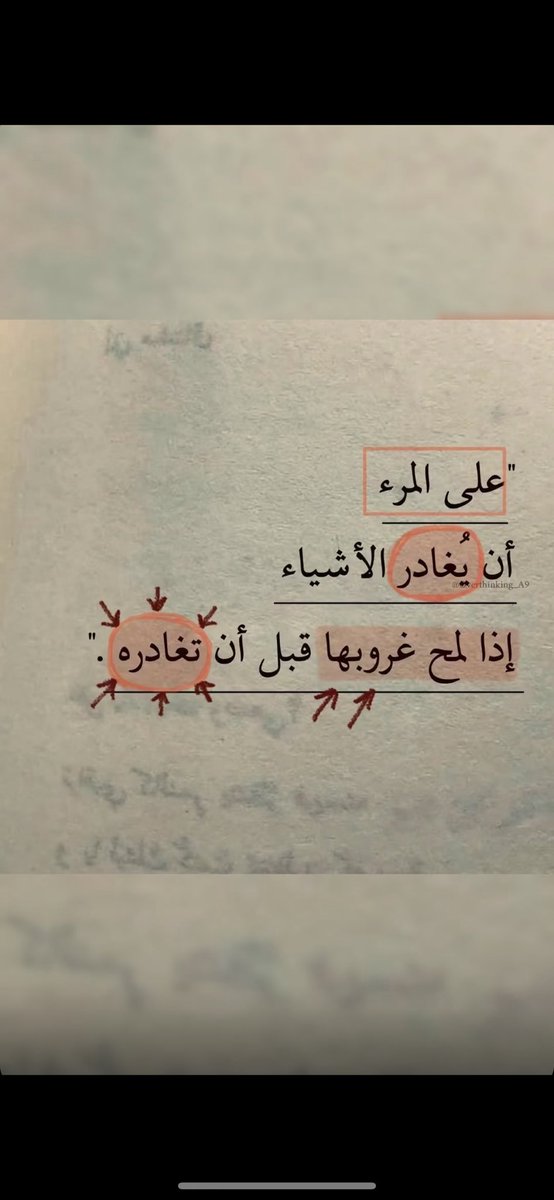 "على المرء
أن يُغادر الأشياء
@overthinking_A9
إذا لمح غروبها قبل أن تغادره ."